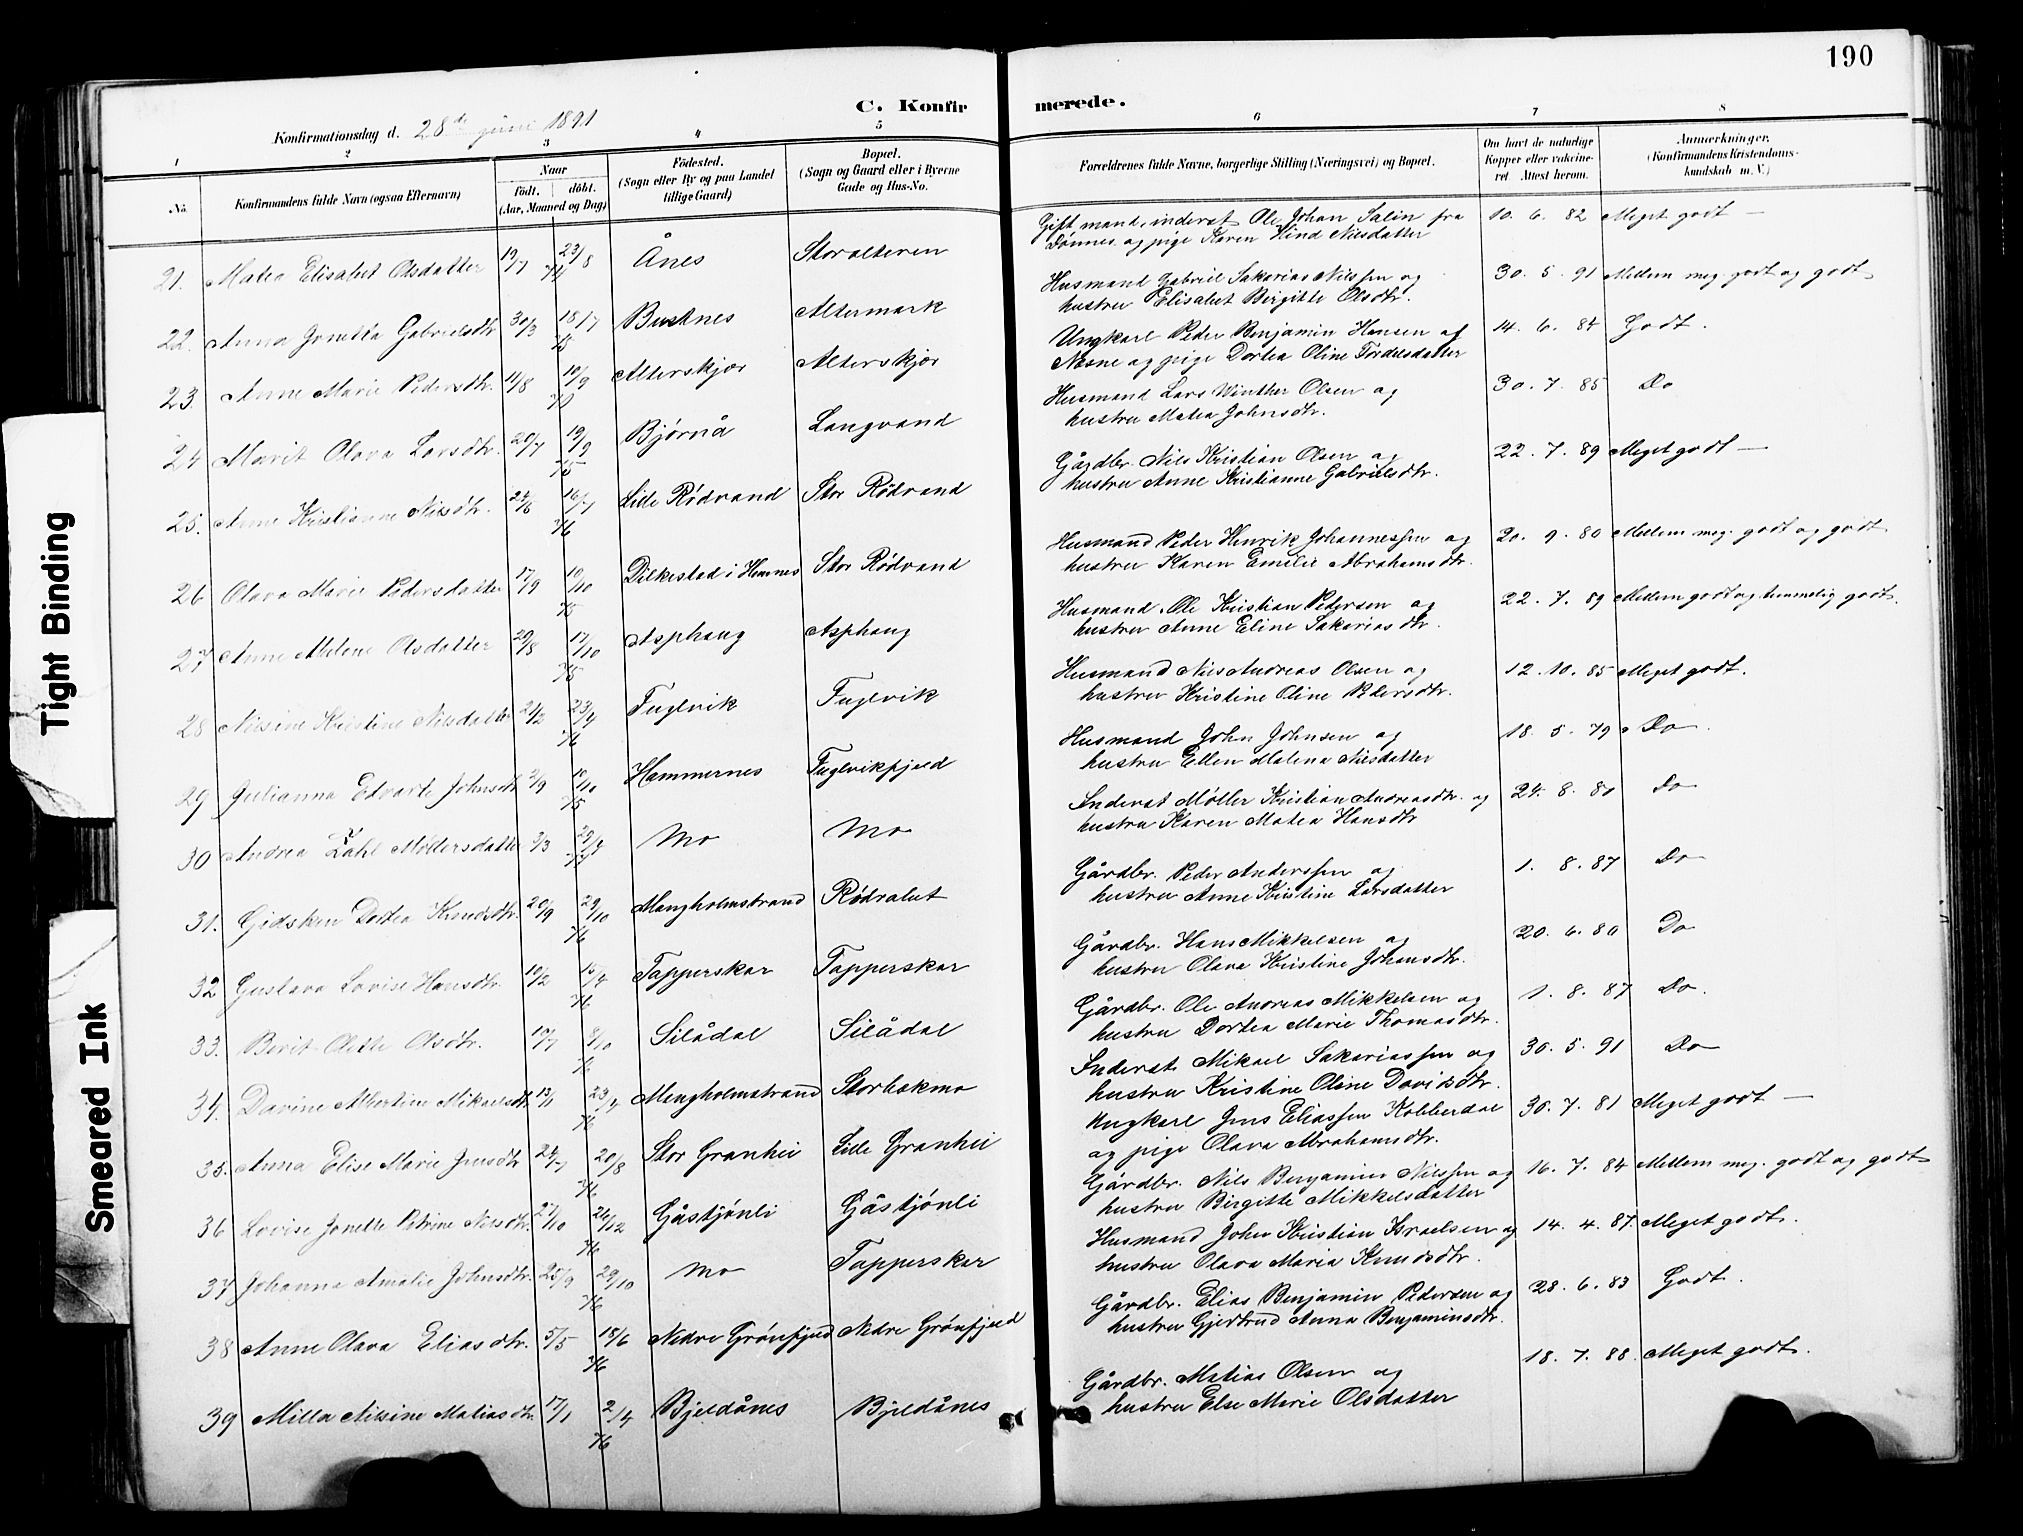 190
C. Konfirmerede.
Konfirmationsdag d. 28de juni 1891
1 2 3 4 5 6 7 8
No.
Konfirmandens fulde Navn (ogsaa Efternavn)
Naar
födt. döbt.
(Aar, Maaned og Dag)
Födested.
(Sogn eller By og paa Landet
tillige Gaard)
Bopæl.
(Sogn og Gaard eller i Byerne
Gade og Hus-No.
Forældrenes fulde Navne, borgerlige Stilling (Næringsvei) og Bopæl.
Om havt de naturlige
Kopper eller vakcine-
ret. Attest herom.
Anmærkninger.
(Konfirmandens Kristendoms-
kundskab m. V.)
21. Matea Elisabet Olsdatter 19/7 23/8 Ånes Storalteren
Gift mand, inderst Ole Johan Salin fra
Dønnes og pige Karen Hind Nilsdatter
10. 6. 82 Meget godt —
22. Anna Jonetta Gabrielsdtr 30/3 18/7 75 Bustnes Altermark
Husmand Gabriel Sakarias Nilssen og
hustru Elisabet Birgitte Olsdtr.
30. 5. 91 Mellem meg. godt og godt
23. Anne Marie Pedersdtr. 11/8 10/9 Alterskjær Alterskjær
Ungkarl Peder Benjamin Hansen af
Nesne og pige Dortea Oline Tordelsdatter
14. 6. 84 Godt.
24 Marit Olava Larsdtr. 20/7 19/9 75 Bjørnå Langvand
Husmand Lars Winther Olsen og
hustru Matea Johnsdtr.
30. 7. 85 Do
25. Anne Kristianne Nilsdtr. 24/6 16/7 76 Lille Rödvand Stor Rödvand
Gårdbr. Nils Kristian Olsen og
hustru Anne Kristianne Gabrielsdtr.
22. 7. 89 Meget godt —
26 Olava Marie Pedersdatter 17/9 10/10 75 Dilkestad i Hemnes Stor Rödvand
Husmand Peder Henrik Johannessen og
hustru Karen Emelie Abrahamsdtr.
20. 9. 80 Mellem meg. godt og godt
27 Anne Malene Olsdatter 29/8 17/10 75 Asphaug Asphaug
Husmand Ole Kristian Pedersen og
hustru Anne Eline Sakariasdtr.
22. 7. 89 Mellem godt og temmelig godt.
28 Nilsine Kristine Nilsdatter 24/2 23/4 76 Fuglvik Fuglvik
Husmand Nils Andreas Olsen og
hustru Kristine Oline Pedersdtr.
12. 10. 85 Meget godt.
29 Julianna Edvarte Johnsdt 2/9 10/10 75 Hammernes Fuglvikfjeld
Husmand John Johnsen og
hustru Ellen Malena Nilsdatter
18. 5. 79 Do
30 Andrea Zahl Møllersdatter 3/3 29/4 Mo Mo
Inderst Møller Kristian Andreasdtr. og
hustru Karen Matea Hansdtr
24. 8. 80 Do
31. Gidsken Dortea Knudsdtr. 20/9 29/10 76 Mengholmstrand Rødvalut
Gårdbr. Peder Anderssen og
hustru Anne Kristine Larsdatter
1. 8. 87 Do
32 Gustava Lovise Hansdtr. 10/2 15/4 76 Tapperskar Tapperskar
Gårdbr. Hans Mikkelsen og
hustru Olava Kristine Johansdtr.
20. 6. 80 Do
33. Berit Olette Olsdtr. 10/7 8/10 76 Silådal Silådal
Gårdbr. Ole Andreas Mikkelsen og
hustru Dortea Marie Thomasdtr.
1. 8. 87 Do.
34. Davine Albertine Mikaelsdtr 13/1 23/4 76 Mengholmstrand Storbakmo
Inderst Mikael Sakariassen og
hustru Kristine Oline Davidsdtr.
30. 5. 91 Do
35. Anna Elise Marie Jensdtr 24/7 20/8 76 Stor Granhei Lille Granhei
Ungkarl Jens Eliassen Kobberdal
og pige Olava Abrahamsdtr.
30. 7. 81 Meget godt —
36 Lovise Jonette Petrine Nilsdtr. 27/10 26/12 76 Gåstjönli Gåstjönli
Gårdbr. Nils Benjamin Nilssen og
hustru Birgitte Mikkelsdatter
16. 7. 84 Mellem meg. godt og godt
37 Johanna Amalie Johnsdtr. 25/9 29/10 76 Mo Tapperskar
Husmand John Kristian Israelsen og
hustru Olava Maria Knudsdtr.
14. 4. 87. Meget godt.
38 Anne Olava Eliasdtr. 5/5 18/6 76 Nedre Grönfjeld Nedre Grönfjeld
Gårdbr. Elias Benjamin Pedersen og
hustru Gjertrud Anna Benjaminsdtr.
28. 6. 83 Godt.
39 Milla Nilsine Matiasdtr. 17/1 2/4 76 Bjeldånes Bjeldånes
Gårdbr. Matias Olsen og
hustru Else Marie Olsdatter
18. 7. 88. Meget godt.
Tight Binding
Smeared Ink